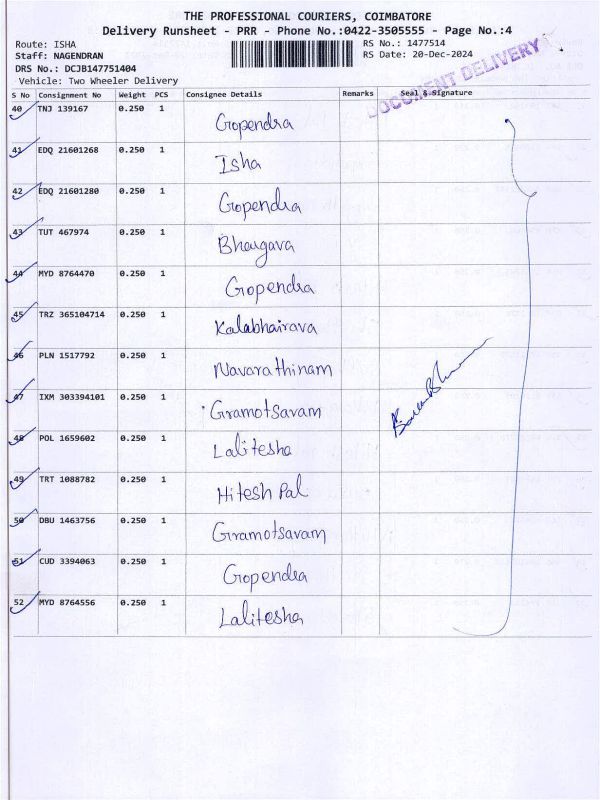 THE PROFESSIONAL COURIERS, COIMBATORE
Delivery Runsheet - PRR - Phone No.:0422-3505555 - Page No.:4
Route: ISHA
RS No.: 1477514
Staff: NAGENDRAN
RS Date: 20-Dec-2024
DRS No.: DCJB147751404
Vehicle: Two Wheeler Delivery
DOCUMENT DELIVERY
S No Consignment No Weight PCS Consignee Details Remarks Seal & Signature
40 TNJ 139167 0.250 1 Gopendra
41 EDQ 21601268 0.250 1 Isha
42 EDQ 21601280 0.250 1 Gopendra
43 TUT 467974 0.250 1 Bhargava
44 MYD 8764470 0.250 1 Gopendra
45 TRZ 365104714 0.250 1 Kalabhairava
46 PLN 1517792 0.250 1 Navarathinam
47 IXM 303394101 0.250 1 Gramotsavam
48 POL 1659602 0.250 1 Lalitesha
49 TRT 1088782 0.250 1 Hitesh Pal
50 DBU 1463756 0.250 1 Gramotsavam
51 CUD 3394063 0.250 1 Gopendra
52 MYD 8764556 0.250 1 Lalitesha